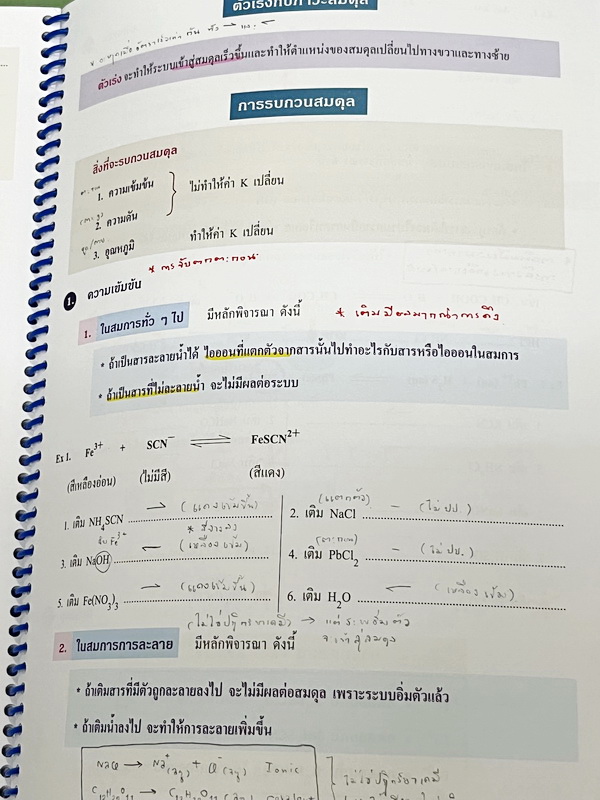 ตัวเร่งกับภาวะสมดุล
ตัวเร่ง จะทำให้ระบบเข้าสู่สมดุลเร็วขึ้นและทำให้ตำแหน่งของสมดุลเปลี่ยนไปทางขวาและทางซ้าย
การรบกวนสมดุล
สิ่งที่จะรบกวนสมดุล
1. ความเข้มข้น
ไม่ทำให้ค่า K เปลี่ยน
2. ความดัน
3. อุณหภูมิ
ทำให้ค่า K เปลี่ยน
* การจับตกตะกอน
1. ความเข้มข้น
1. ในสมการทั่ว ๆ ไป มีหลักพิจารณา ดังนี้ * เติมมีผลมากกว่าการดึง
* ถ้าเป็นสารละลายน้ำได้ ไอออนที่แตกตัวจากสารนั้นไปทำอะไรกับสารหรือไอออนในสมการ
* ถ้าเป็นสารที่ไม่ละลายน้ำ จะไม่มีผลต่อระบบ
Ex 1. Fe³⁺ + SCN⁻ ⇌ FeSCN²⁺
(สีเหลืองอ่อน) (ไม่มีสี) (สีแดง)
1. เติม NH₄SCN → (แดงเข้มขึ้น)
(แตกตัว)
2. เติม NaCl – (ไม่ปป.)
จับ Fe³⁺
3. เติม NaOH ← (เหลืองเข้ม)
(ตะกอน)
4. เติม PbCl₂ – (ไม่ปป.)
5. เติม Fe(NO₃)₃ → (แดงเข้มขึ้น)
6. เติม H₂O ← (เหลืองเข้ม)
(ไม่ใช่ปฏิกิริยาเคมี) → แต่ระบบอิ่มตัว
จะเข้าสู่สมดุล
2. ในสมการการละลาย มีหลักพิจารณา ดังนี้
* ถ้าเติมสารที่มีตัวถูกละลายลงไป จะไม่มีผลต่อสมดุล เพราะระบบอิ่มตัวแล้ว
* ถ้าเติมน้ำลงไป จะทำให้การละลายเพิ่มขึ้น
NaCl → Na⁺(aq) + Cl⁻(aq) Ionic
ไม่ใช่ปฏิกิริยาเคมี